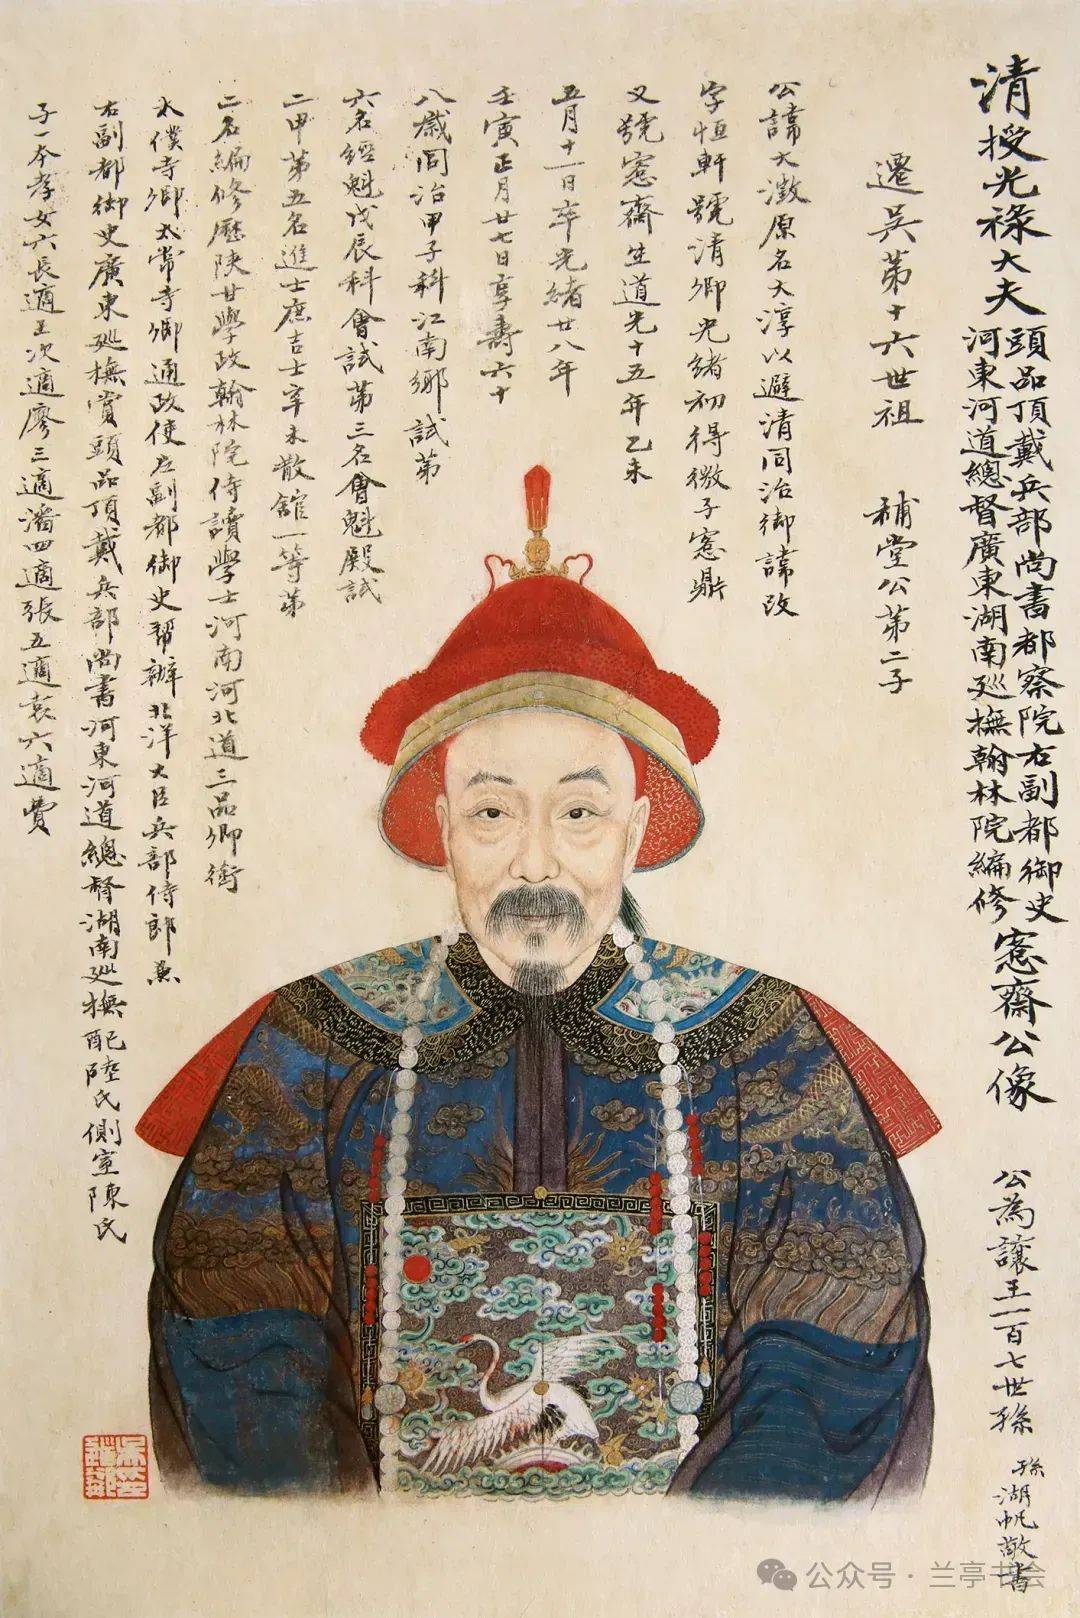 清授光祿大夫
頭品頂戴兵部尚書都察院右副都御史
河東河道總督廣東湖南巡撫翰林院編修
愙齋公像
公為讓王一百七世孫
孫湖帆敬書
遷吳第十六世祖 補堂公第二子
公諱大澂原名大淳以避清同治御諱改
字恒軒號清卿光緒初得微子愙鼎
又號愙齋生道光十五年乙未
五月十一日卒光緒廿八年
壬寅正月廿七日享壽六十
八歲同治甲子科江南鄉試第
六名經魁戊辰科會試第三名會魁殿試
二甲第五名進士庶吉士辛未散館一等第
二名編修歷陝甘學政翰林院侍讀學士河南河北道三品卿銜
太僕寺卿太常寺卿通政使左副都御史幫辦北洋大臣兵部侍郎兼
右副都御史廣東巡撫賞頭品頂戴兵部尚書河東河道總督湖南巡撫配陸氏側室陳氏
子一本孝女六長適王次適廖三適潘四適張五適袁六適費
公众号·兰亭书会